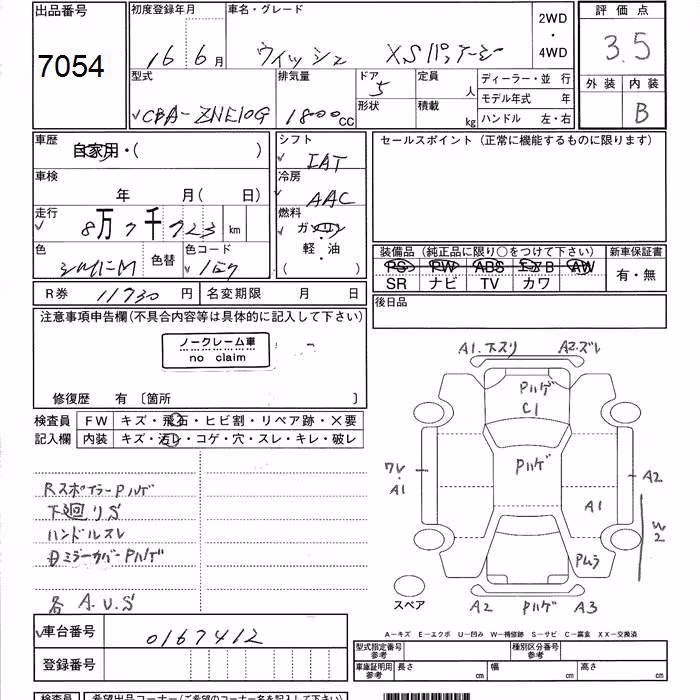 出品番号 初度登録年月 車名・グレード 2WD ・ 4WD 評価点
7054 16 6月 ウィッシュ XSパッケージ 3.5
型式 排気量 ドア 形状 定員 人 積載 kg ディーラー・並 行 外装 内装
CBA-ZNE10G 1800cc 5 モデル年式 年 B
ハンドル 左・右
車歴 自家用・( )
シフト IAT
セールスポイント (正常に機能するものに限ります)
車検 年 月( 日)
冷房 AAC
走行 8万7千723 km
燃料 ガソリン 軽・油 ( )
色 シルバーM 色替 色コード 1E7
装備品 (純正品に限り○をつけて下さい) 新車保証書
PS PW ABS エアB AW 有・無
SR ナビ TV カワ
R券 11730 円 名変期限 月 日
後日品
注意事項申告欄(不具合内容等は具体的に記入して下さい)
ノークレーム車
no claim
修復歴 有 〔箇所 〕
検査員 FW キズ・飛石・ヒビ割・リペア跡・X要
記入欄 内装 キズ・汚レ・コゲ・穴・スレ・キレ・破レ
A1.下スリ A2.ズレ
Pハゲ
C1
Pハゲ
ワレ A1 A2
A1
W2
Pムラ
RスポイラーPハゲ
下廻りS
ハンドルスレ
日ミラーカバーPハゲ
各 A.U.S
スペア A2 Pハゲ A3
A－キズ E－エクボ U－凹み W－補修跡 S－サビ C－腐食 XX－交換済
車台番号 0167412
型式指定番号 参考 種別区分番号 参考
登録番号
車庫証明用 参考 長さ cm 幅 cm 高さ cm
検査員 希望出品コーナー(ご希望のコーナー名を記入下さい)